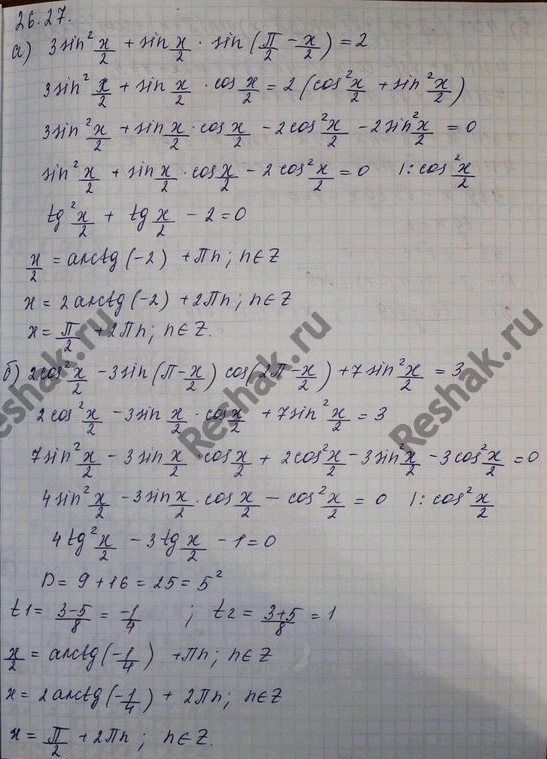 26.27.
а) 3sin² x/2 + sin x/2 · sin(π/2 − x/2) = 2
3sin² x/2 + sin x/2 · cos x/2 = 2(cos² x/2 + sin² x/2)
3sin² x/2 + sin x/2 · cos x/2 − 2cos² x/2 − 2sin² x/2 = 0
sin² x/2 + sin x/2 · cos x/2 − 2cos² x/2 = 0 |: cos² x/2
tg² x/2 + tg x/2 − 2 = 0
x/2 = arctg(−2) + πn; n∈Z
x = 2arctg(−2) + 2πn; n∈Z
x = π/2 + 2πn; n∈Z.
б) 2cos² x/2 − 3sin(π − x/2) cos(2π − x/2) + 7sin² x/2 = 3
2cos² x/2 − 3sin x/2 · cos x/2 + 7sin² x/2 = 3
7sin² x/2 − 3sin x/2 · cos x/2 + 2cos² x/2 − 3sin² x/2 − 3cos² x/2 = 0
4sin² x/2 − 3sin x/2 · cos x/2 − cos² x/2 = 0 |: cos² x/2
4tg² x/2 − 3tg x/2 − 1 = 0
D = 9 + 16 = 25 = 5²
t1 = (3−5)/8 = −1/4 ; t2 = (3+5)/8 = 1
x/2 = arctg(−1/4) + πn; n∈Z
x = 2arctg(−1/4) + 2πn; n∈Z
x = π/2 + 2πn; n∈Z.
Reshak.ru
Reshak.ru
Reshak.ru